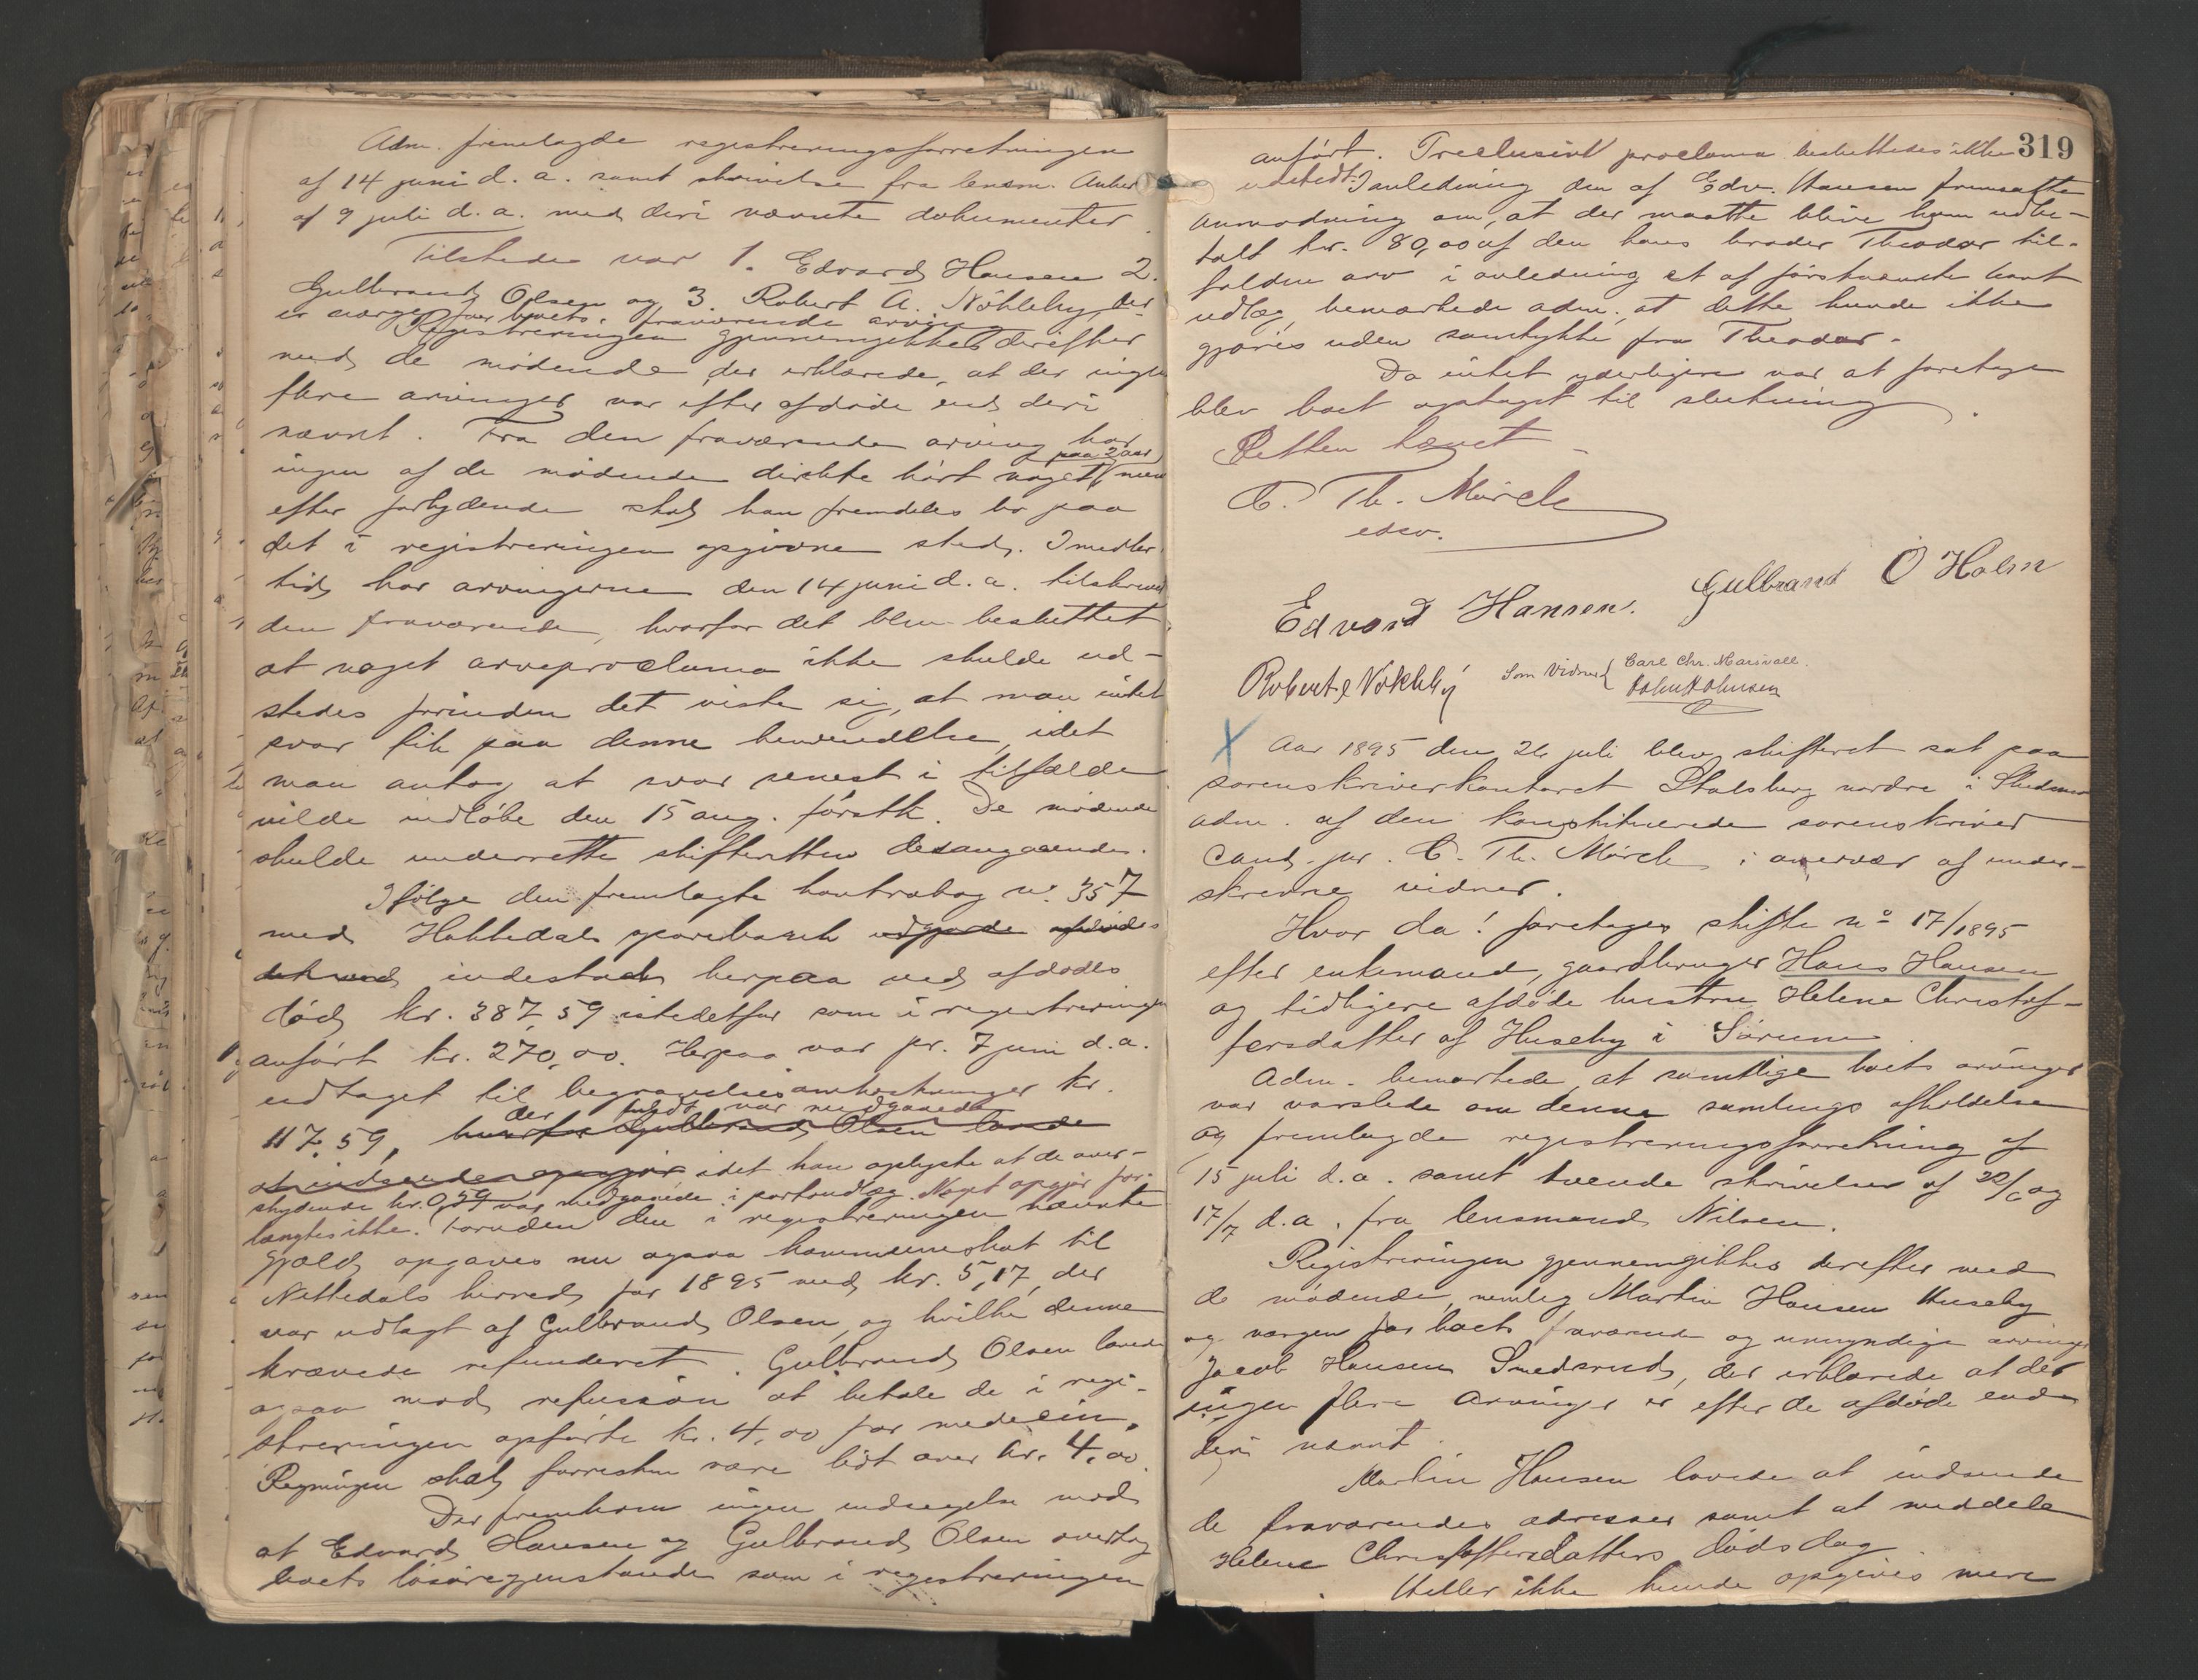 Adm. fremlagde registreringsforretningen
af 14 juni d. a. samt skrivelse fra lensm. Anker
af 9 juli d. a. med deri nævnte dokumenter.
Tilstede var 1. Edvard Hansen 2.
Gulbrand Olsen og 3. Robert A. Nökleby, der
er værge for boets fraværende arving
Registreringen gjennemgikkes derefter
med de mödende der erklærede, at der ingen
flere arvinger var efter afdöde end deri
nævnt. Fra den fraværende arving har
paa 2 aar
ingen af de mödende direkte hört noget, men
efter forlydende skal han fremdeles bo paa
det i registreringen opgivne sted. Imidler-
tid har arvingerne den 14 juni d. a. tilskrevet
den fraværende, hvorfor det blev besluttet
at noget arveproclama ikke skulde ud-
stedes forinden det viste sig, at man intet
svar fik paa denne henvendelse, idet
man antog, at svar senest i tilfælde
vilde indlöbe den 15 aug. förstk. De mödende
skulde underrette skifteretten desangaaende.
Ifölge den fremlagte kontrabog no. 357
med Hakkedals sparebank udgjorde afdödes
indestod herpaa ved afdödes
död kr. 387,59 istedetfor som i registreringen
anfört kr. 270,00. Herpaa var pr. 7 juni d. a.
udtaget til begravelsesomkostninger kr.
der var medgaaede
117,59, hvorfor Gulbrand Olsen lovede
at indsende opgjör idet han oplyste at de over-
skydende kr. 0,59 var medgaaede i portoudlæg. Noget opgjör for-
langtes ikke. Foruden den i registreringen nævnte
gjæld opgaves nu ogsaa kommuneskat til
Nittedals herred for 1895 med kr. 5,17, der
var udlagt af Gulbrand Olsen, og hvilke denne
krævede refunderet. Gulbrand Olsen lovede
ogsaa mod refusion at betale de i regi-
streringen opförte kr. 4,00 for medecin.
Regningen skal forresten være lidt over kr. 4,00.
Der fremkom ingen indsigelse mod
at Edvard Hansen og Gulbrand Olsen overtog
boets lösöregjenstande som i registreringen
319
anfört. Preclusivt proclama besluttedes ikke
udstedt. I anledning den af Edv. Hansen fremsatte
anmodning om, at der maatte blive ham udbe-
talt kr. 80,00 af den hans broder Theodor til-
falden arv i anledning et af förstnævnte havt
udlæg, bemærkede adm., at dette kunde ikke
gjöres uden samtykke fra Theodor.
Da intet yderligere var at foretage
blev boet optaget til slutning.
Retten hævet
C. Th. Mörch
edsv.
Edvard Hansen. Gulbrand O Holm
Robert A Nökleby Som Vidner { Carl Chr. Marivall.
John Johnsen
X Aar 1895 den 26 juli blev skifteret sat paa
sorenskriverkontoret Stalsberg nordre i Skedsmo
adm. af den konstituerede sorenskriver
cand. jur. C. Th. Mörch i overvær af under-
skrevne vidner.
Hvor da! foretoges skifte no 17/1895
efter enkemand, gaardbruger Hans Hansen
og tidligere afdöde hustru Helene Christof-
fersdatter af Huseby i Sörum.
Adm. bemærkede, at samtlige boets arvinger
var varslede om denne samlings afholdelse
og fremlagde registreringsforretning af
15 juli d. a. samt tvende skrivelser af 22/6 og
17/7 d. a. fra lensmand Nilsen.
Registreringen gjennemgikkes derefter med
de mödende, nemlig Martin Hansen Huseby
og værgen for boets fraværende og umyndige arvinger
Jacob Hansen Smedsrud, der erklærede at der
ingen flere arvinger er efter de afdöde end
deri nævnt.
Martin Hansen lovede at indsende
de fraværendes adresser samt at meddele
Helene Christoffersdatters dödsdag.
Heller ikke kunde opgives mere